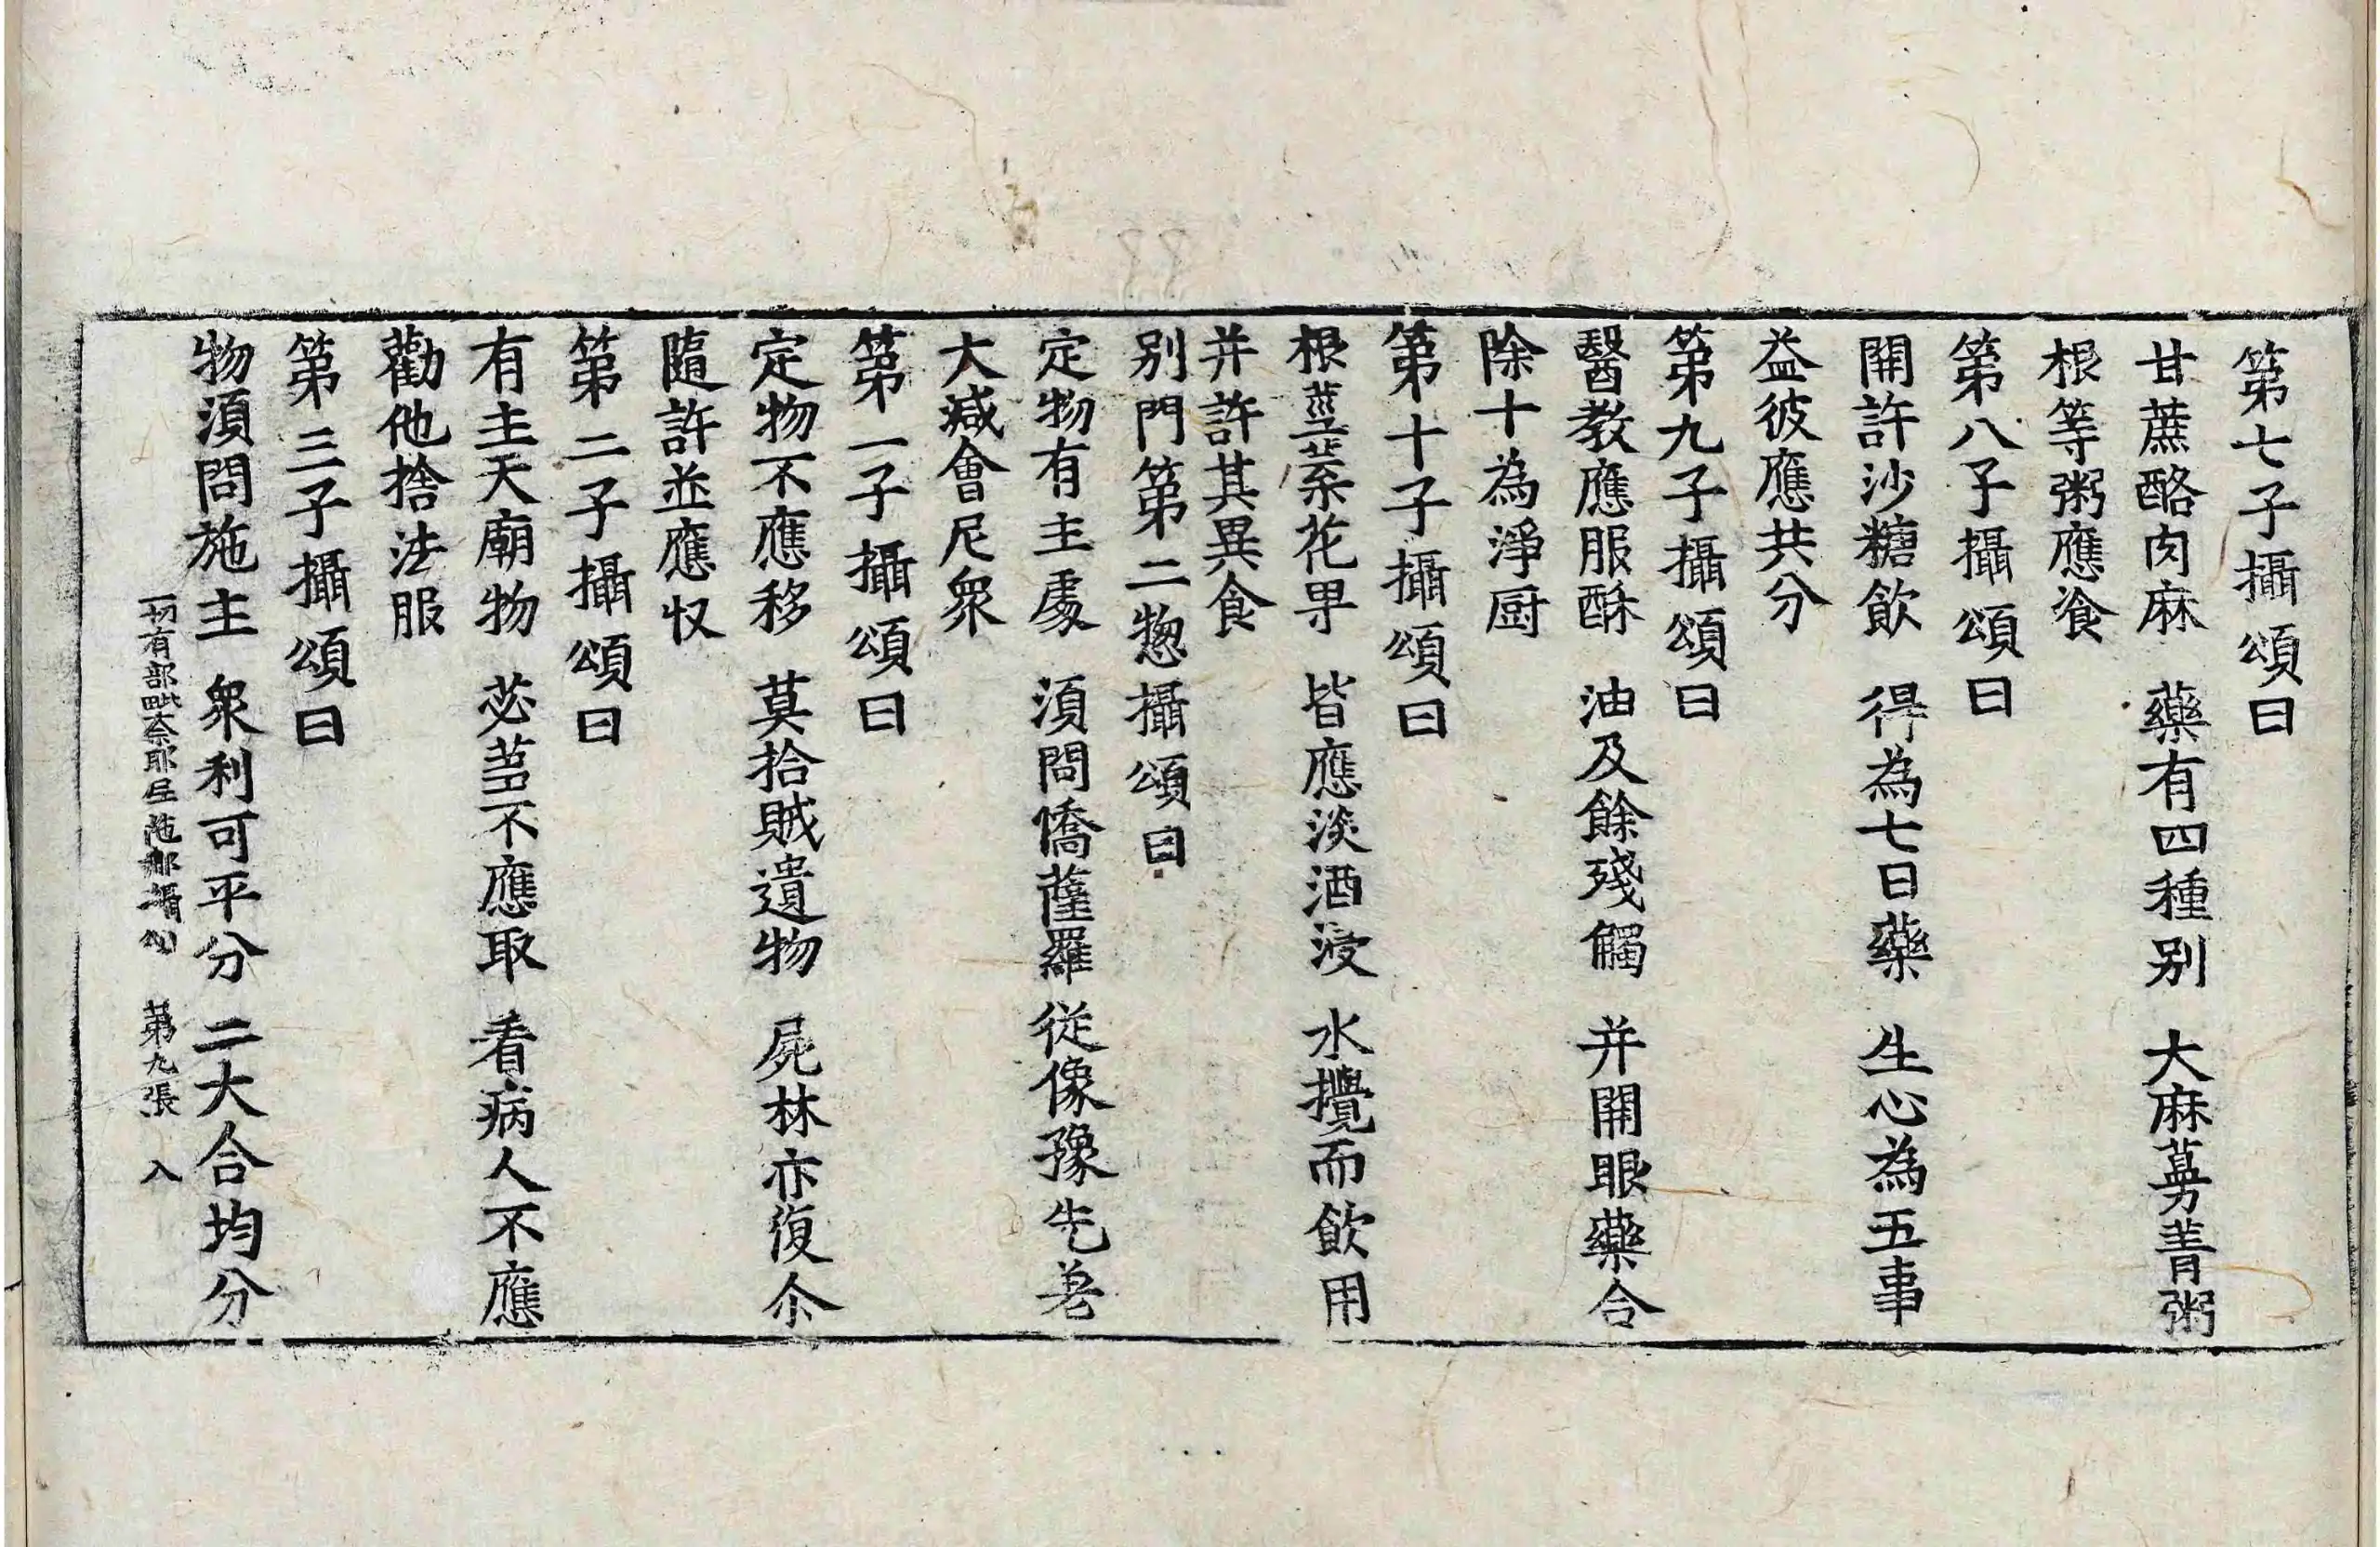 第七子攝頌曰
甘蔗酪肉麻　藥有四種別　大麻蔓菁粥
根等粥應飡
第八子攝頌曰
開許沙糖飲　得為七日藥　生心為五事
益彼應共分
第九子攝頌曰
醫教應服酥　油及餘殘觸　并開眼藥合
除十為淨厨
第十子攝頌曰
根莖葉花果　皆應淡酒浸　水攪而飲用
并許其異食
別門第二惣攝頌曰
定物有主處　須問憍薩羅　從像豫先差
大減會尼衆
第一子攝頌曰
定物不應移　莫拾賊遺物　屍林亦復尒
隨許並應収
第二子攝頌曰
有主天廟物　苾蒭不應取　看病人不應
勸他捨法服
第三子攝頌曰
物須問施主　衆利可平分　二大合均分
一切有部毗奈耶尼陁那攝頌　第九張　入